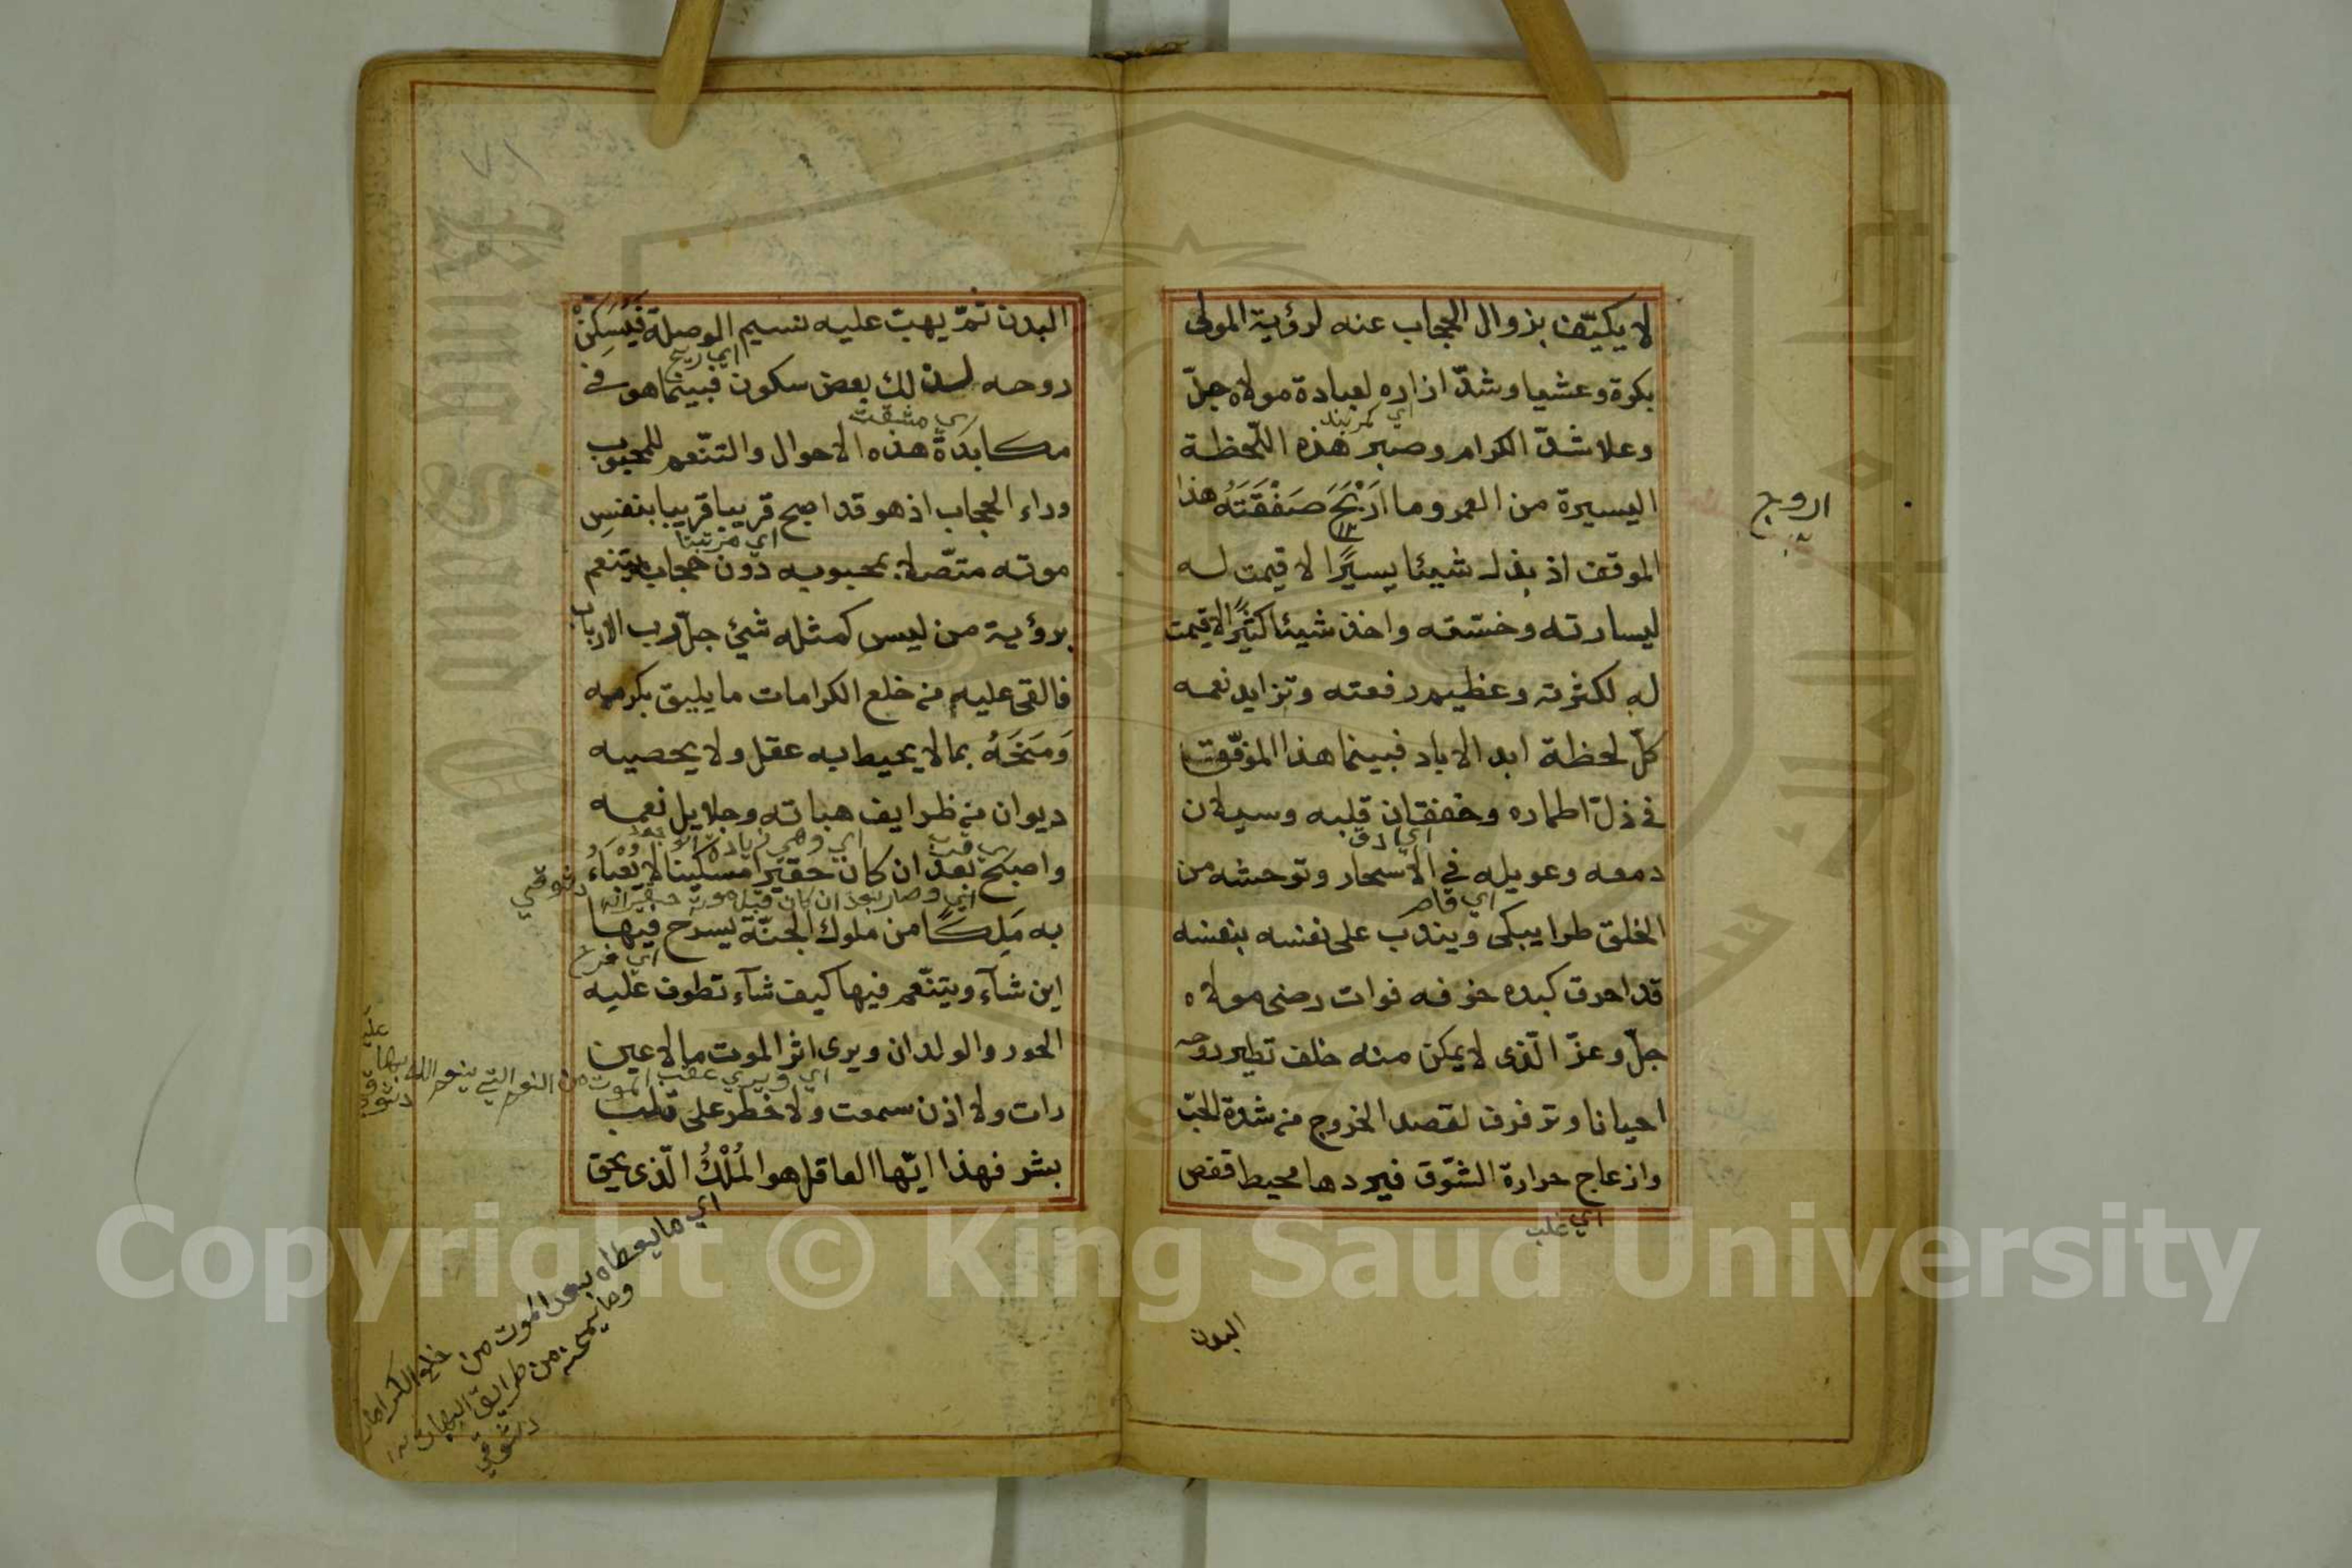 لا يكيّف بزوال الحجاب عنه لرؤية المولى
بكرة وعشيا وشدّ ازاره لعبادة مولاه جلّ
اي كمربند
وعلا شدّ الكرام وصبر هذه اللّحظة
اليسيرة من العمر وما اَرْبَحَ صَفْقَتَهُ هذا
الموقف اذ بذل شيئا يسيرًا لا قيمت له
ليسارته وخسّته واخذ شيئا كثيرًا لا قيمت
له لكثرته وعظيم رفعته وتزايد نعمه
كلّ لحظة ابد الاباد فبينما هذا الموفّق
في ذلّ اطماره وخفقان قلبه وسيلان
دمعه وعويله في الاسحار وتوحشه من
الخلق طرا يبكى ويندب على نفسه بنفسه
قد احرق كبده خوفه فوات رضى مولاه
جلّ وعزّ الّذى لا يمكن منه خلف تطير روحه
احيانا وترفرف لقصد الخروج من شدة الحبّ
وازعاج حرارة الشوّق فيردها محيط قفص
اي غلب
البدن
البدن ثمّ يهبّ عليه نسيم الوصلة فيسكن
اي ريح
روحه لذلك بعض سكون فبينما هو في
اي مشقت
مكابدة هذه الاحوال والتنّعم للمحبوب
وراء الحجاب اذ هو قد اصبح قريبا قريبا بنفس
موته متّصلا بمحبوبه دون حجاب يتنعم
برؤية من ليس كمثله شئ جلّ رب الارباب
فالقى عليه من خلع الكرامات ما يليق بكرمه
وَمَنَحَهُ بما لا يحيط به عقل ولا يحصيه
ديوان من ظرايف هباته وجلايل نعمه
واصبح بعد ان كان حقيرا مسكينا لا يَعْبَاءُ
اي وصار بعد ان كان قبل موته حقيرا
به مَلِكًا من ملوك الجنّة يسرح فيها
اين شآء ويتنّعم فيها كيف شآء تطوف عليه
الحور والولدان ويرى اثر الموت ما لا عين
اي ويرى عقب الموت من النعم التي ينعم الله بها عليه
رات ولا اذن سمعت ولا خطر على قلب
بشر فهذا ايّها العاقل هو المُلْكُ الّذى يحق
اي ما يعطاه بعد الموت من خلع الكرامات